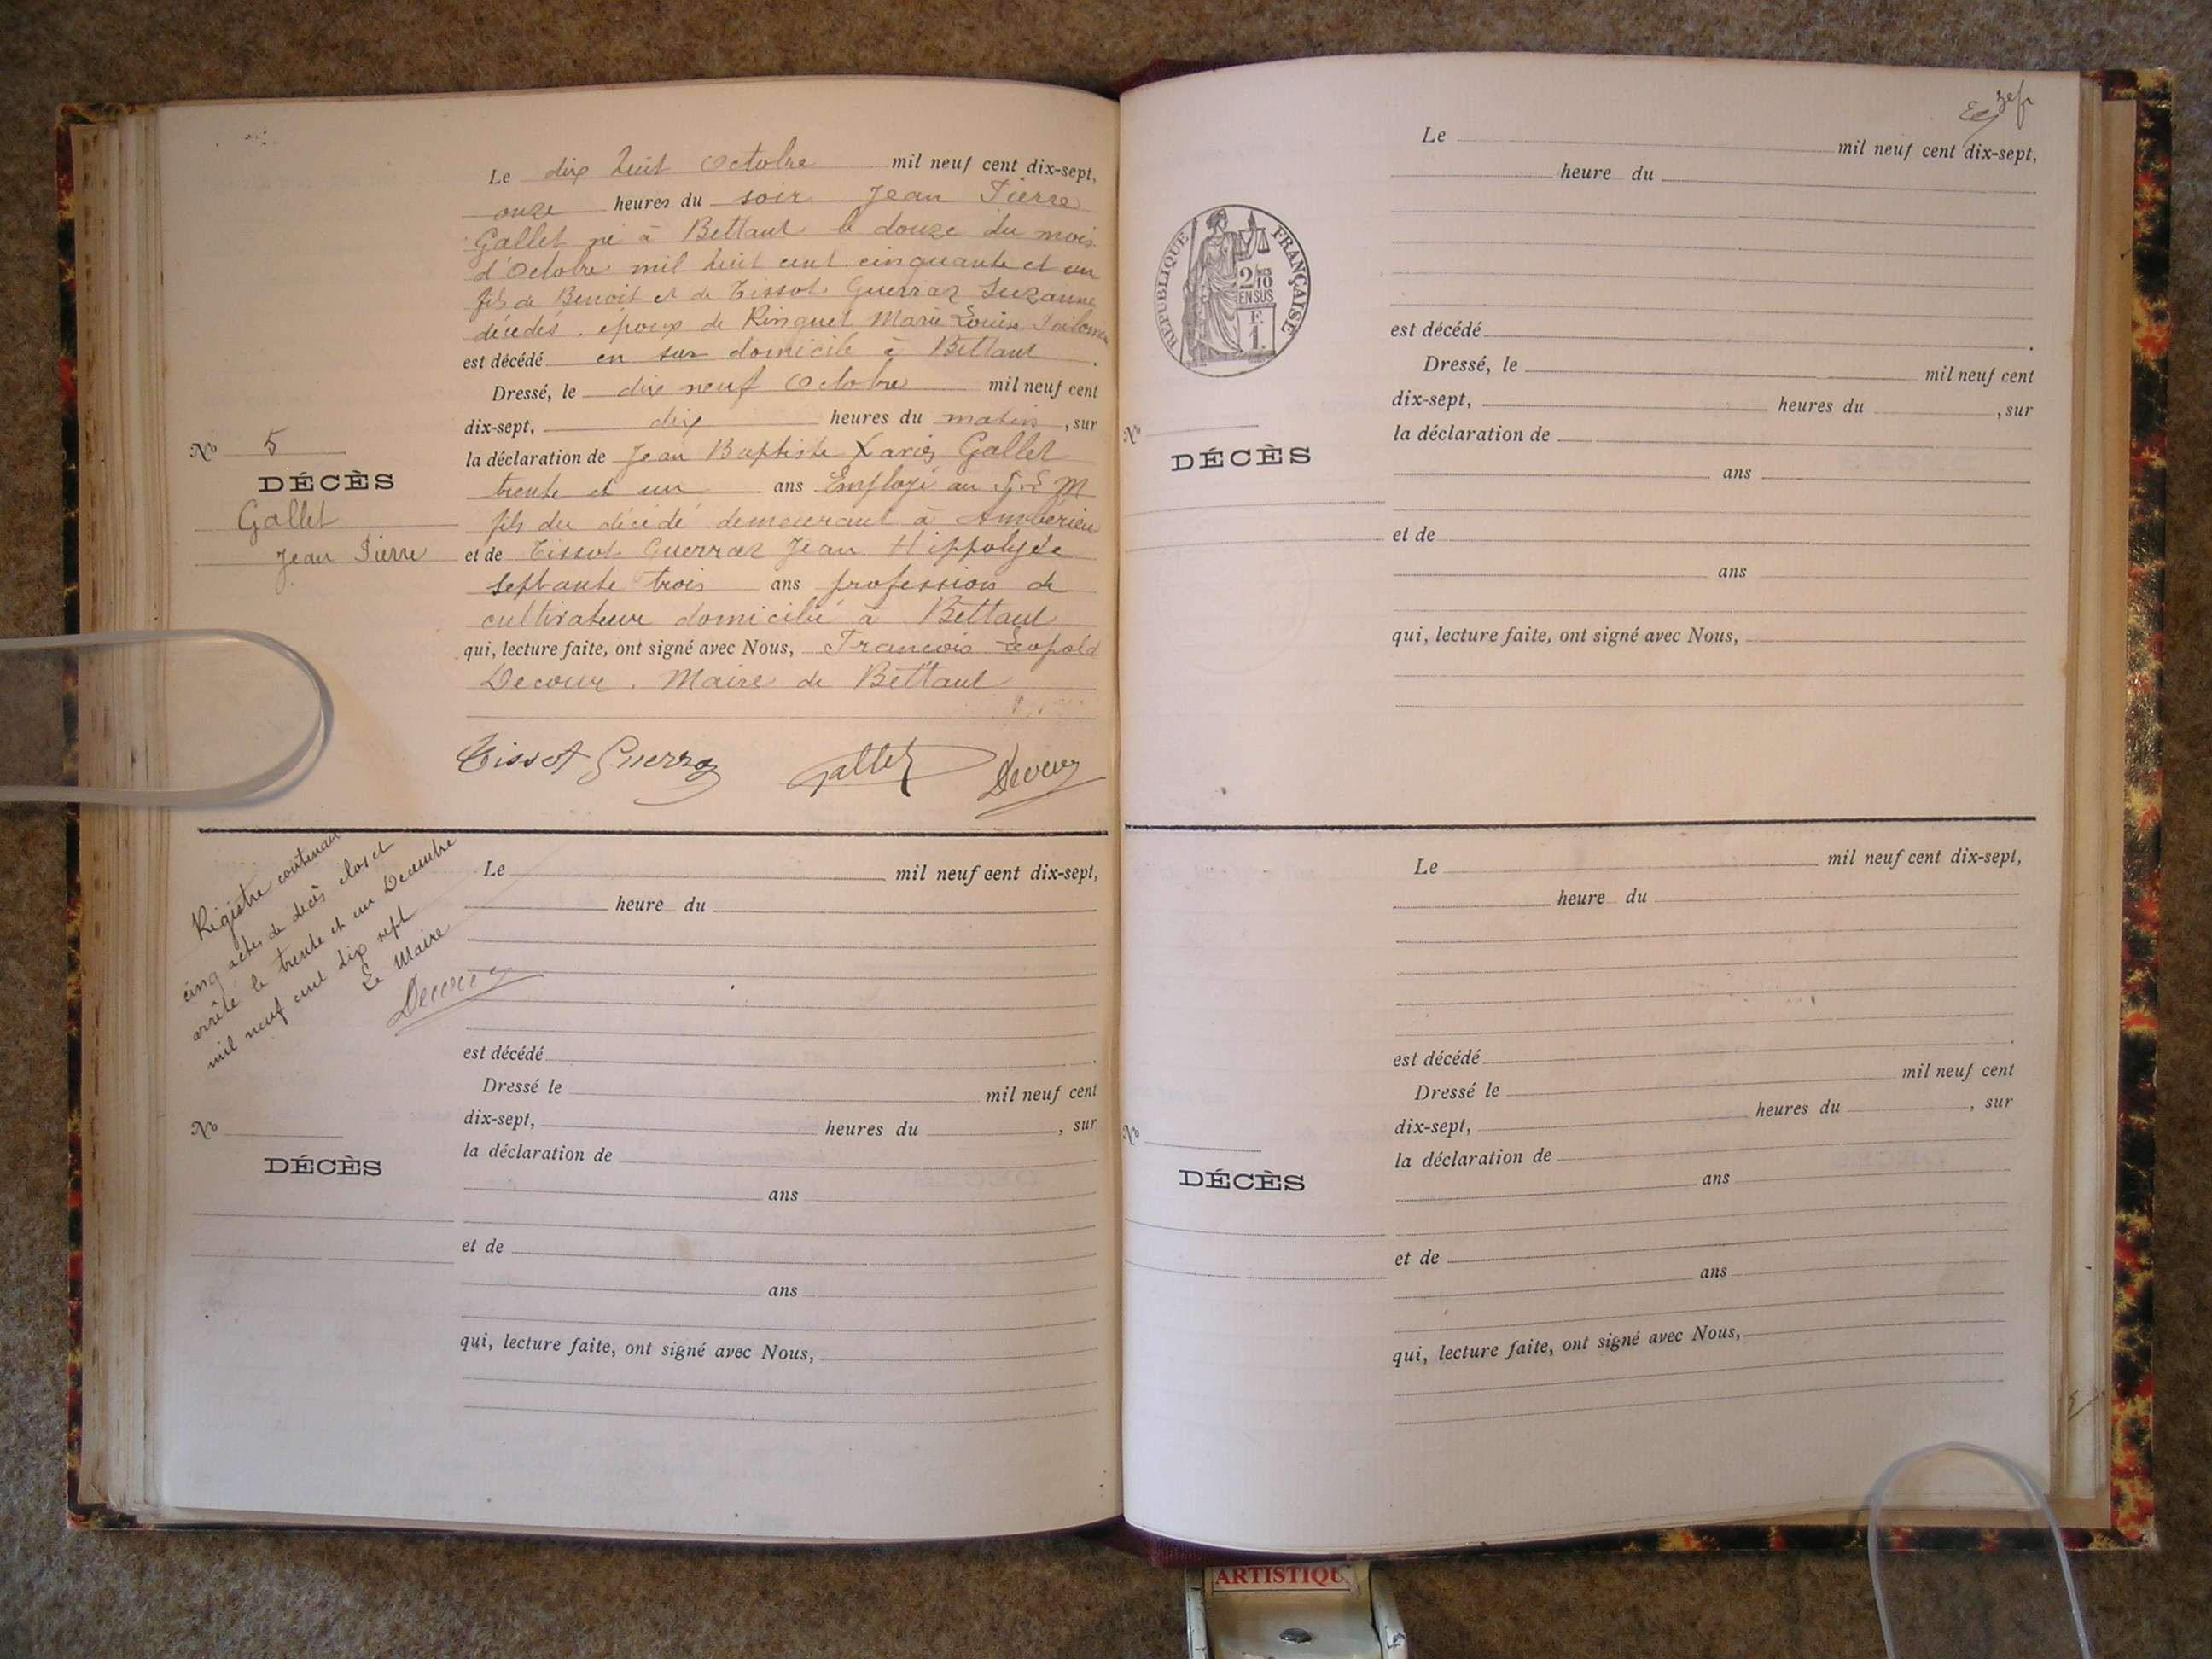 Le dix huit Octobre mil neuf cent dix-sept,
onze heures du soir Jean Pierre
Gallet né à Bettant le douze du mois
d'Octobre mil huit cent cinquante et un
fils de Benoit et de Tissot Guerraz Suzanne
décédés. époux de Ringuet Marie Louise
est décédé en son domicile à Bettant.
Dressé, le dix neuf Octobre mil neuf cent
dix-sept, dix heures du matin, sur
No 5
la déclaration de Jean Baptiste Gallet
DÉCÈS
trente et un ans Employé au P.L.M
Gallet
fils du décédé demeurant à Ambérieu
Jean Pierre
et de Tissot Guerraz Jean Hippolyte
septante trois ans profession de
cultivateur domicilié à Bettant
qui, lecture faite, ont signé avec Nous, Francois Léopold
Decour. Maire de Bettant
Tissot Guerraz Gallet Decour
Registre contenant
cinq actes de décès clos et
arrêté le trente et un Decembre
mil neuf cent dix sept
Le Maire
Decour
Le mil neuf cent dix-sept,
heure du
est décédé .
Dressé le mil neuf cent
dix-sept, heures du , sur
No
la déclaration de
DÉCÈS
ans
et de
ans
qui, lecture faite, ont signé avec Nous,
Le mil neuf cent dix-sept,
heure du
REPUBLIQUE FRANÇAISE
2/10
EN SUS
F.
1.
est décédé .
Dressé, le mil neuf cent
dix-sept, heures du , sur
No
la déclaration de
DÉCÈS
ans
et de
ans
qui, lecture faite, ont signé avec Nous,
Le mil neuf cent dix-sept,
heure du
est décédé .
Dressé le mil neuf cent
dix-sept, heures du , sur
No
la déclaration de
DÉCÈS
ans
et de
ans
qui, lecture faite, ont signé avec Nous,
ARTISTIQU